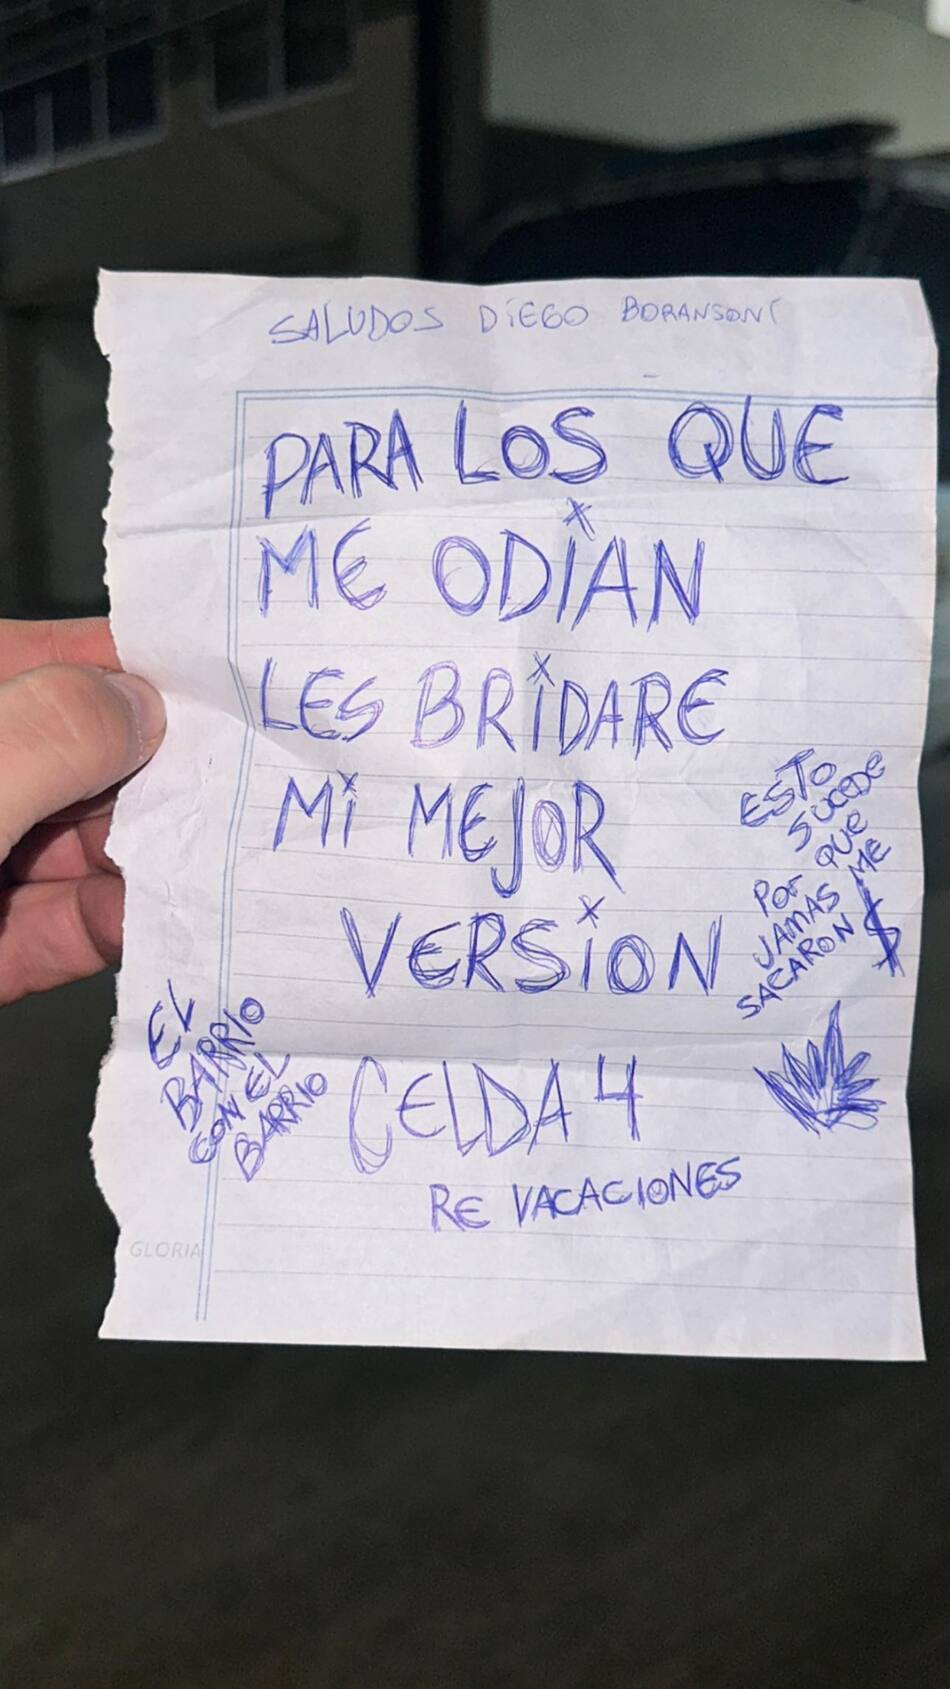 SALUDOS DiEGO BORANSONi
PARA LOS QUE
ME ODiAN
LES BRiDARE
Mi MEJOR
VERSiON
ESTO
SUCEDE
POR QUE
JAMAS ME
SACARON $
EL
BARRIO
CON EL
BARRIO
CELDA 4
RE VACACIONES
GLORIA